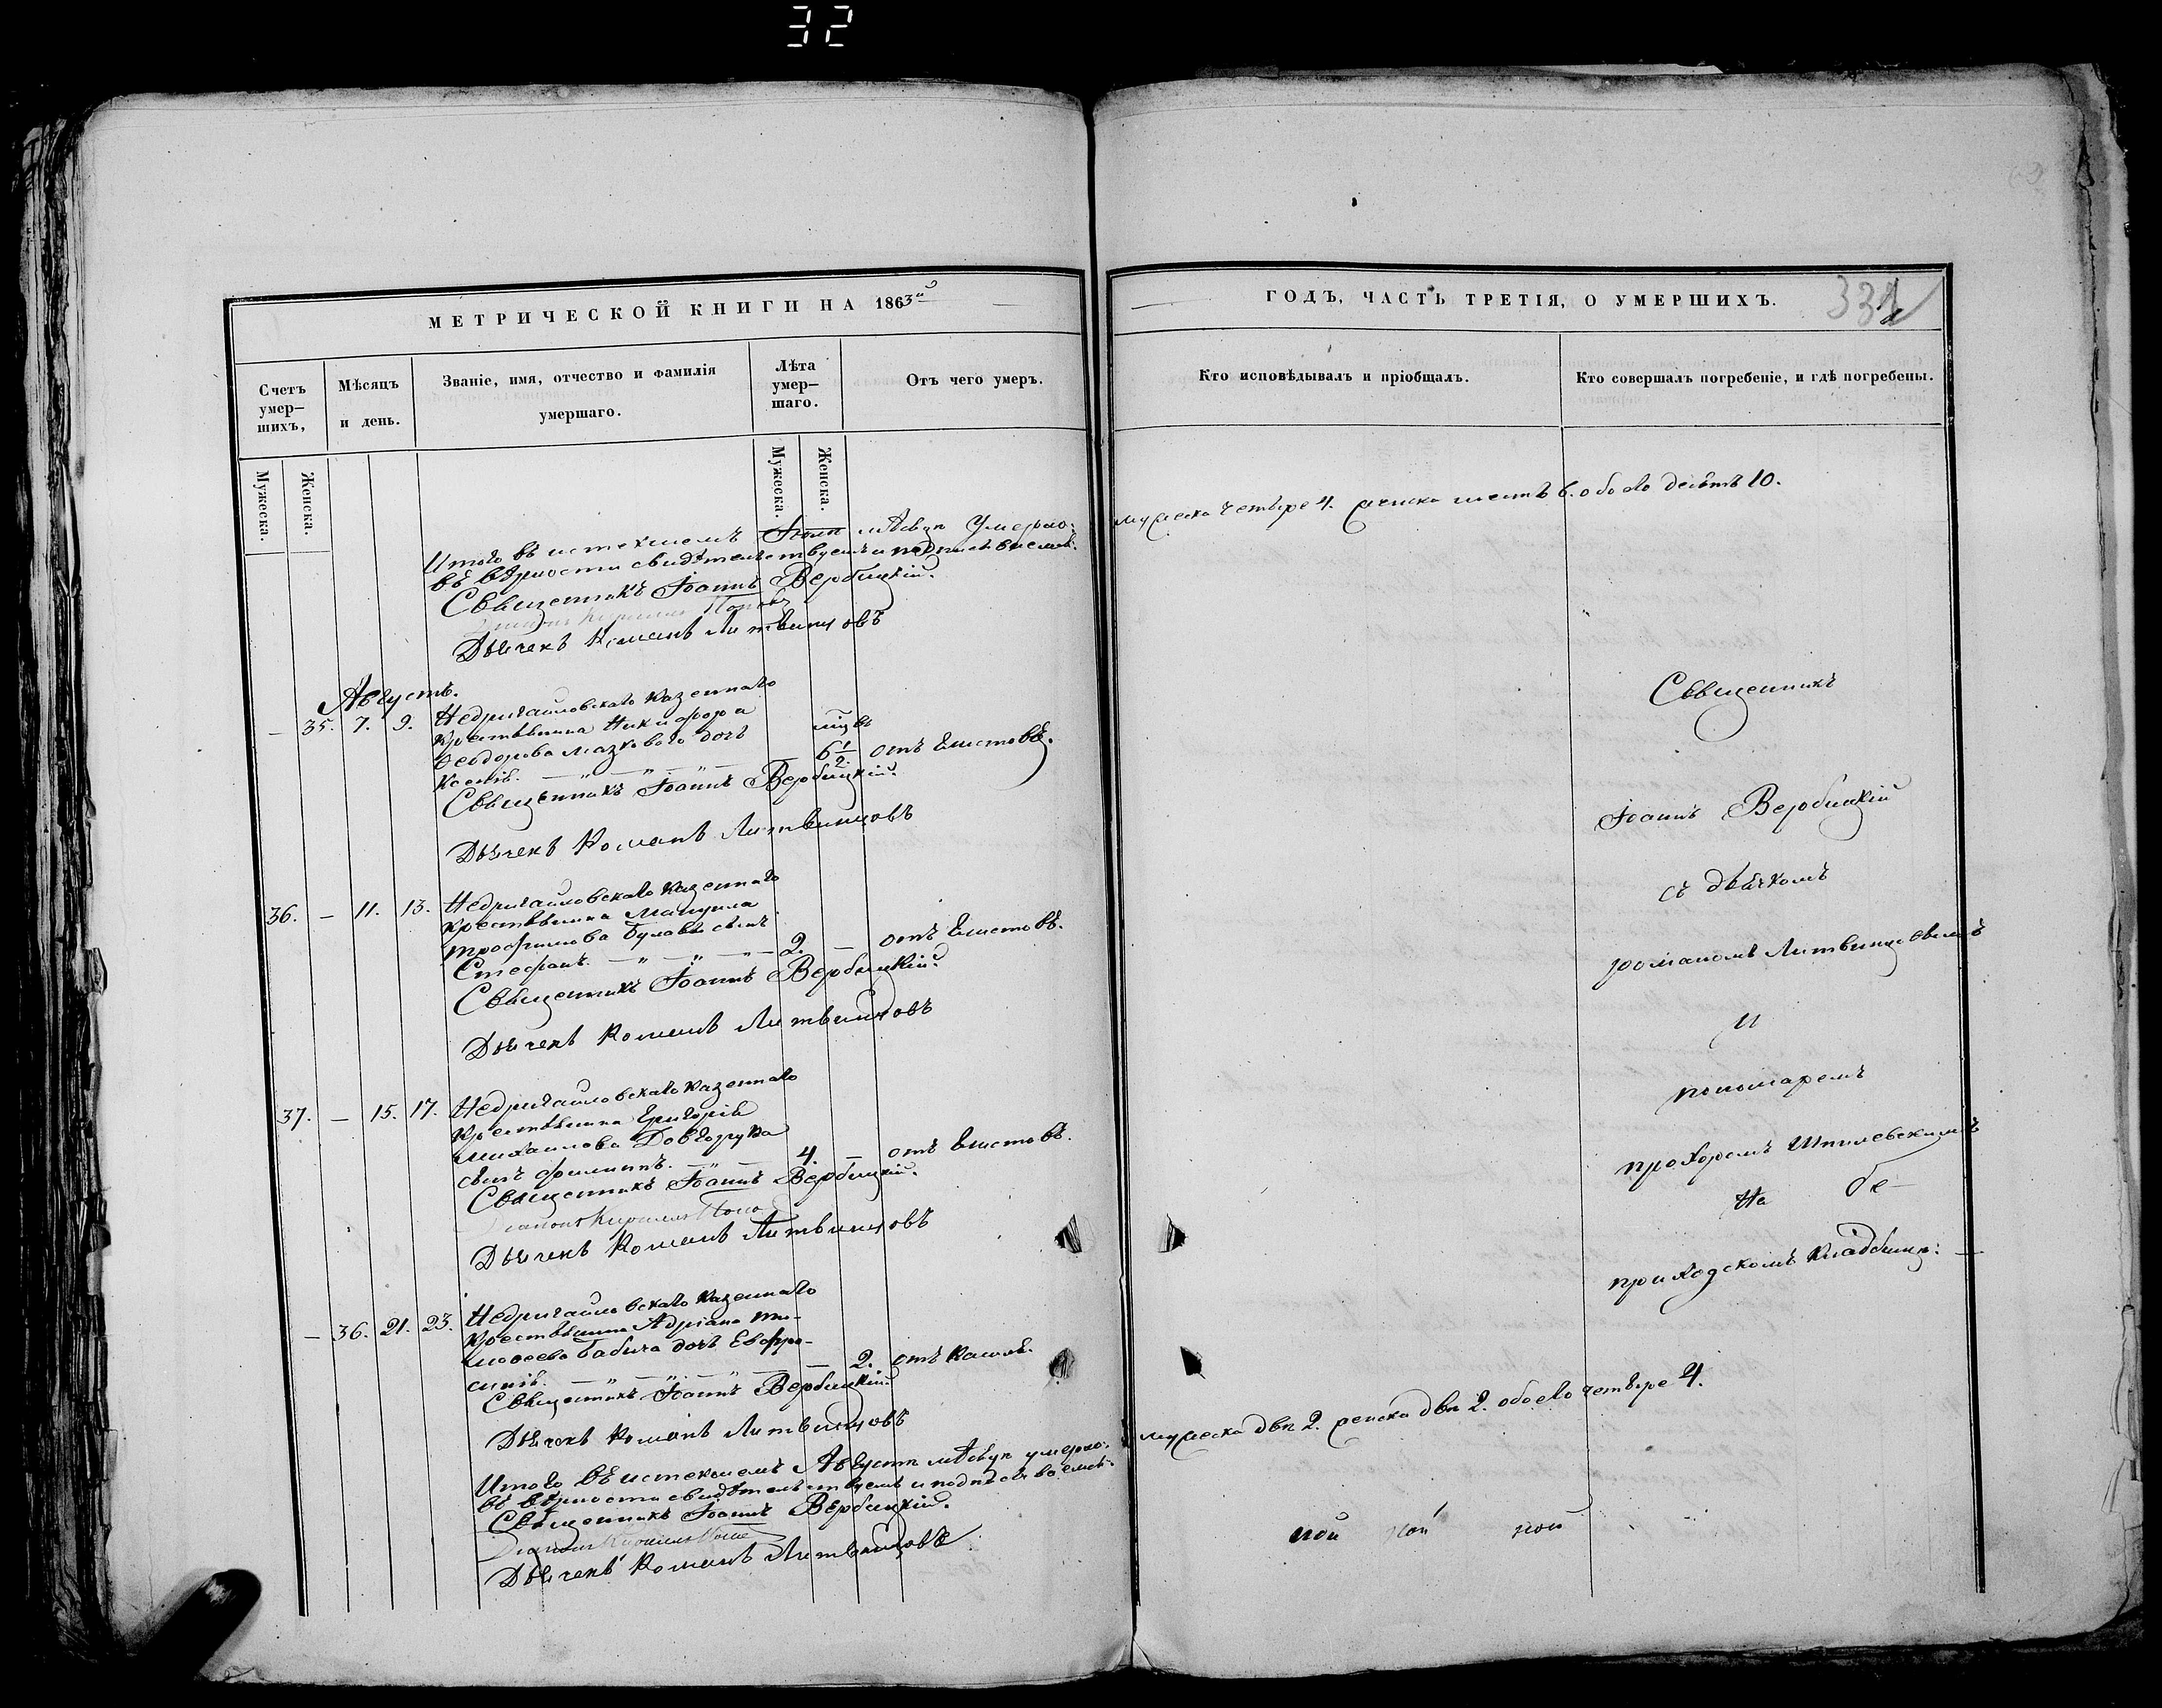 32
МЕТРИЧЕСКОЙ КНИГИ НА 1863й
Счетъ умер-
шихъ,
Мѣсяцъ
и день.
Званіе, имя, отчество и фамилія
умершаго.
Лѣта
умер-
шаго.
Отъ чего умеръ.
Мужеска.
Женска.
Мужеска.
Женска.
Итого въ истекшемъ Іюлѣ мѣсяцѣ Умерло:
въ вѣрности свидѣтельствуемъ и подписываемся:
Священникъ Іоаннъ Вербицкій.
Дьячекъ Романъ Литвинцовъ
Августъ.
— 35. 7. 9. Недригайловскаго казеннаго
крестьянина Никифора
Ѳеодорова дочь
Ксенія. — „ — „ — „ — 6 1/2. отъ глистовъ.
Священникъ Іоаннъ Вербицкій.
Дьячекъ Романъ Литвинцовъ
36. — 11. 13. Недригайловскаго казеннаго
крестьянина
Трофимова сынъ
Стефанъ. — „ — „ — „ — 2. — отъ глистовъ.
Священникъ Іоаннъ Вербицкій.
Дьячекъ Романъ Литвинцовъ
37. — 15. 17. Недригайловскаго казеннаго
крестьянина Григорія
Михайлова Довгорука
сынъ Филиппъ. — „ — 4. — отъ глистовъ.
Священникъ Іоаннъ Вербицкій.
Дьячекъ Романъ Литвинцовъ
— 36. 21. 23. Недригайловскаго казеннаго
крестьянина Адріана Ти-
моѳеева Бабича дочь Евфро-
синія. — „ — „ — „ — 2. отъ кашля.
Священникъ Іоаннъ Вербицкій
Дьячекъ Романъ Литвинцовъ
Итого въ истекшемъ Августѣ мѣсяцѣ умерло:
въ вѣрности свидѣтельствуемъ и подписываемся:
Священникъ Іоаннъ Вербицкій.
Дьячекъ Романъ Литвинцовъ
ГОДЪ, ЧАСТЬ ТРЕТІЯ, О УМЕРШИХЪ.
Кто исповѣдывалъ и пріобщалъ.
Кто совершалъ погребеніе, и гдѣ погребены.
мужеска четыре 4. женска шесть 6. обоего десять 10.
Священникъ
Іоаннъ Вербицкій
съ дьячкомъ
Романомъ Литвинцовымъ
и
пономаремъ
Прохоромъ Шпилевскимъ
На
приходскомъ кладбищѣ: —
мужеска два 2. женска два 2. обоего четыре 4.